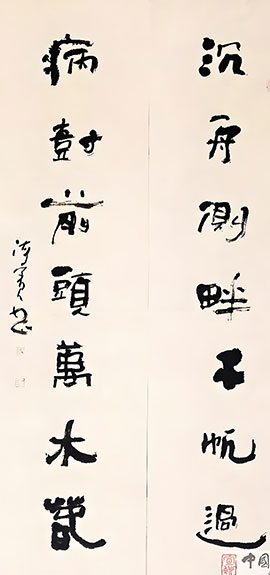 沉舟側畔千帆過
病尌前頭萬木春
中國